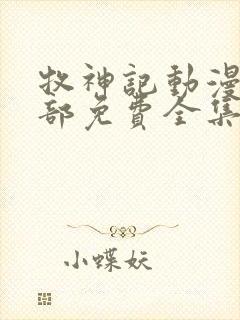 牧神記動漫
部免費全集
小蝶妖